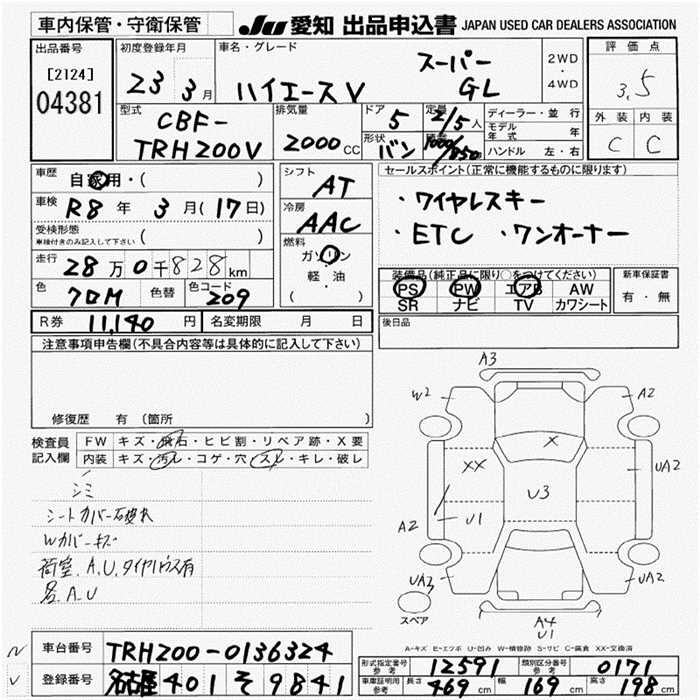 車内保管・守衛保管
JU 愛知 出品申込書 JAPAN USED CAR DEALERS ASSOCIATION
出品番号
[2124]
04381
初度登録年月
23 3月
車名・グレード
ハイエースV スーパー GL
2WD
・
4WD
評価点
3.5
外装 内装
C C
型式
CBF-
TRH200V
排気量
2000 CC
ドア 5
形状 バン
定員 2/5人
積載 1000/850
ディーラー・並行
モデル年式 年
ハンドル 左・右
車歴
自家用・( )
車検 R8年 3月(17日)
受検形態
車検付きのみ記入して下さい ( )
走行 28万0千828km
色 クロM 色替 色コード 209
シフト AT
冷房 AAC
燃料
ガソリン
軽・油
( )
セールスポイント(正常に機能するものに限ります)
・ワイヤレスキー
・ETC ・ワンオーナー
装備品(純正品に限り○をつけてください)
PS PW エアB AW
SR ナビ TV カワシート
新車保証書
有・無
R券 11,140円 名変期限 月 日
後日品
注意事項申告欄(不具合内容等は具体的に記入して下さい)
修復歴 有 (箇所 )
検査員記入欄
FW キズ・飛石・ヒビ割・リペア跡・X要
内装 キズ・汚レ・コゲ・穴・スレ・キレ・破レ
シミ
シートカバー破れ
Wカバーキズ
A.U.タイヤハウス有
A.U
A3
W2 A2
X
XX UA2
U3
U1
A2
UA3 UA2
スペア
A4
U1
A-キズ E-エクボ U-凹み W-補修跡 S-サビ C-腐食 XX-交換済
車台番号 TRH200-0136324
登録番号 名古屋 401 そ 9841
形式指定番号 参考 12591 類別区分番号 参考 0171
車庫証明用 参考 長さ 469cm 幅 169cm 高さ 198cm